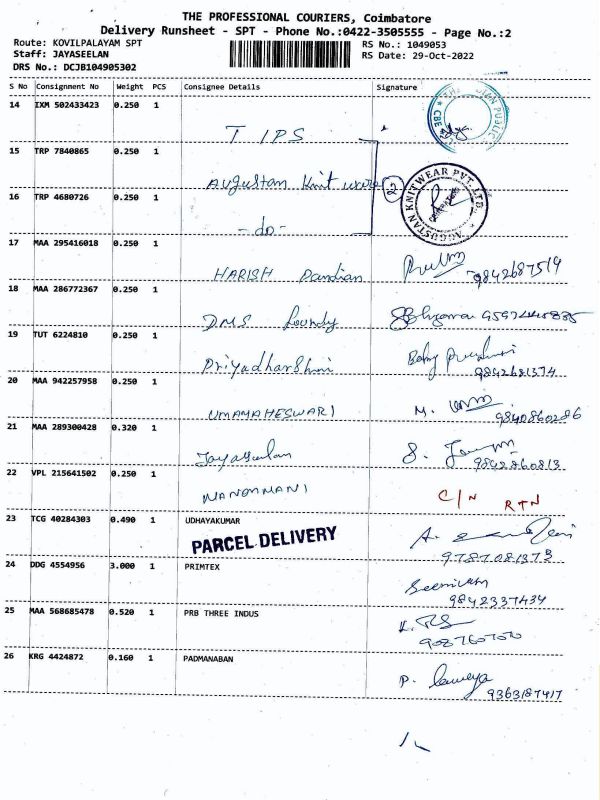 THE PROFESSIONAL COURIERS, Coimbatore
Delivery Runsheet - SPT - Phone No.:0422-3505555 - Page No.:2
Route: KOVILPALAYAM SPT
Staff: JAYASEELAN
DRS No.: DCJB104905302
RS No.: 1049053
RS Date: 29-Oct-2022
S No Consignment No Weight PCS Consignee Details Signature
14 IXM 502433423 0.250 1
TIPS
15 TRP 7840865 0.250 1
Augustan Knit ware 2
AUGUSTAN KNITWEAR PVT. LTD.
16 TRP 4680726 0.250 1
-do-
17 MAA 295416018 0.250 1
HARISH Pandian 9842687519
18 MAA 286772367 0.250 1
DMS Loundy
19 TUT 6224810 0.250 1
Priyadharshini 9842681374
20 MAA 942257958 0.250 1
UMAMAHESWARI M. 9840860286
21 MAA 289300428 0.320 1
Jayaseelan S. 9842860813
22 VPL 215641502 0.250 1
MANONMANI C/N RTN
23 TCG 40284303 0.490 1 UDHAYAKUMAR
PARCEL DELIVERY A. 9787081373
24 DDG 4554956 3.000 1 PRIMTEX
9842337434
25 MAA 568685478 0.520 1 PRB THREE INDUS
26 KRG 4424872 0.160 1 PADMANABAN
P. 9363187417